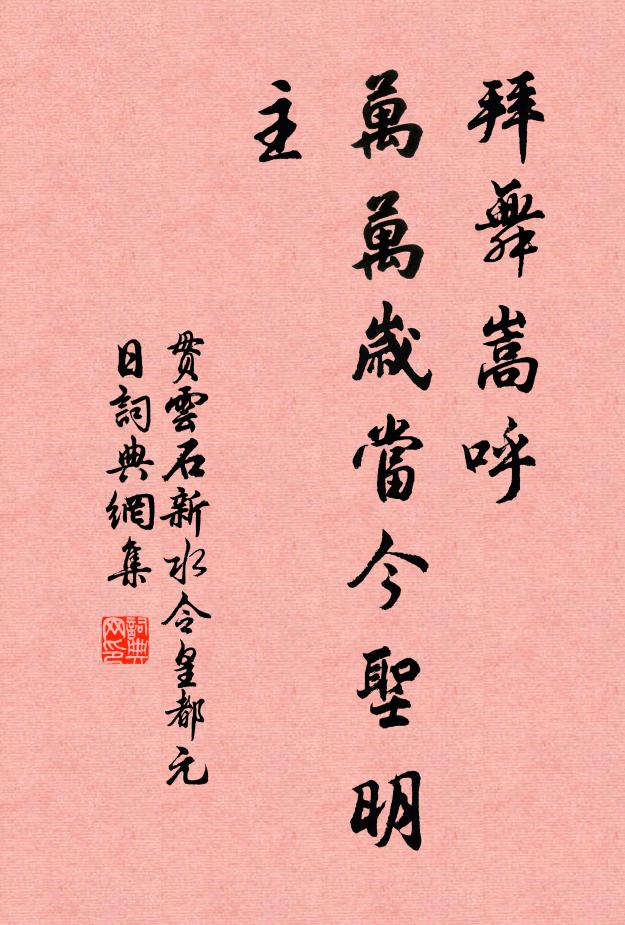 拜舞嵩呼
萬萬歲當今聖明
主
貫雲石新水令皇都元
日詞典網集
詞典
网印